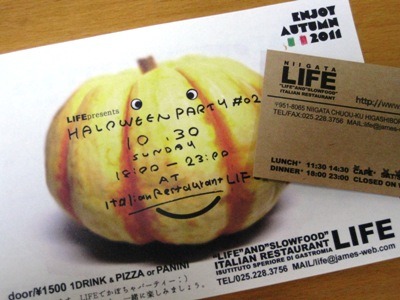 ENJOY
AUTUMN
2011
LIFE presents
HALOWEEN PARTY #02
10.30
SUNDAY
18:00-23:00
AT
Italian Restaurant LIFE
door/¥1500 1DRINK & PIZZA or PANINI
"LIFE"AND"SLOWFOOD"
ITALIAN RESTAURANT LIFE
ISUTITUTO SPERIORE DI GASTROMIA
TEL/025.228.3756 MAIL/life@james-web.com
NIIGATA
LIFE
"LIFE"AND"SLOWFOOD"
ITALIAN RESTAURANT
http://www.
〒951-8065 NIIGATA CHUOU-KU HIGASHIBO
TEL/FAX.025.228.3756 MAIL.life@james-
LUNCH* 11:30 14:30 CAFE*
DINNER* 18:00 23:00 CLOSED ON